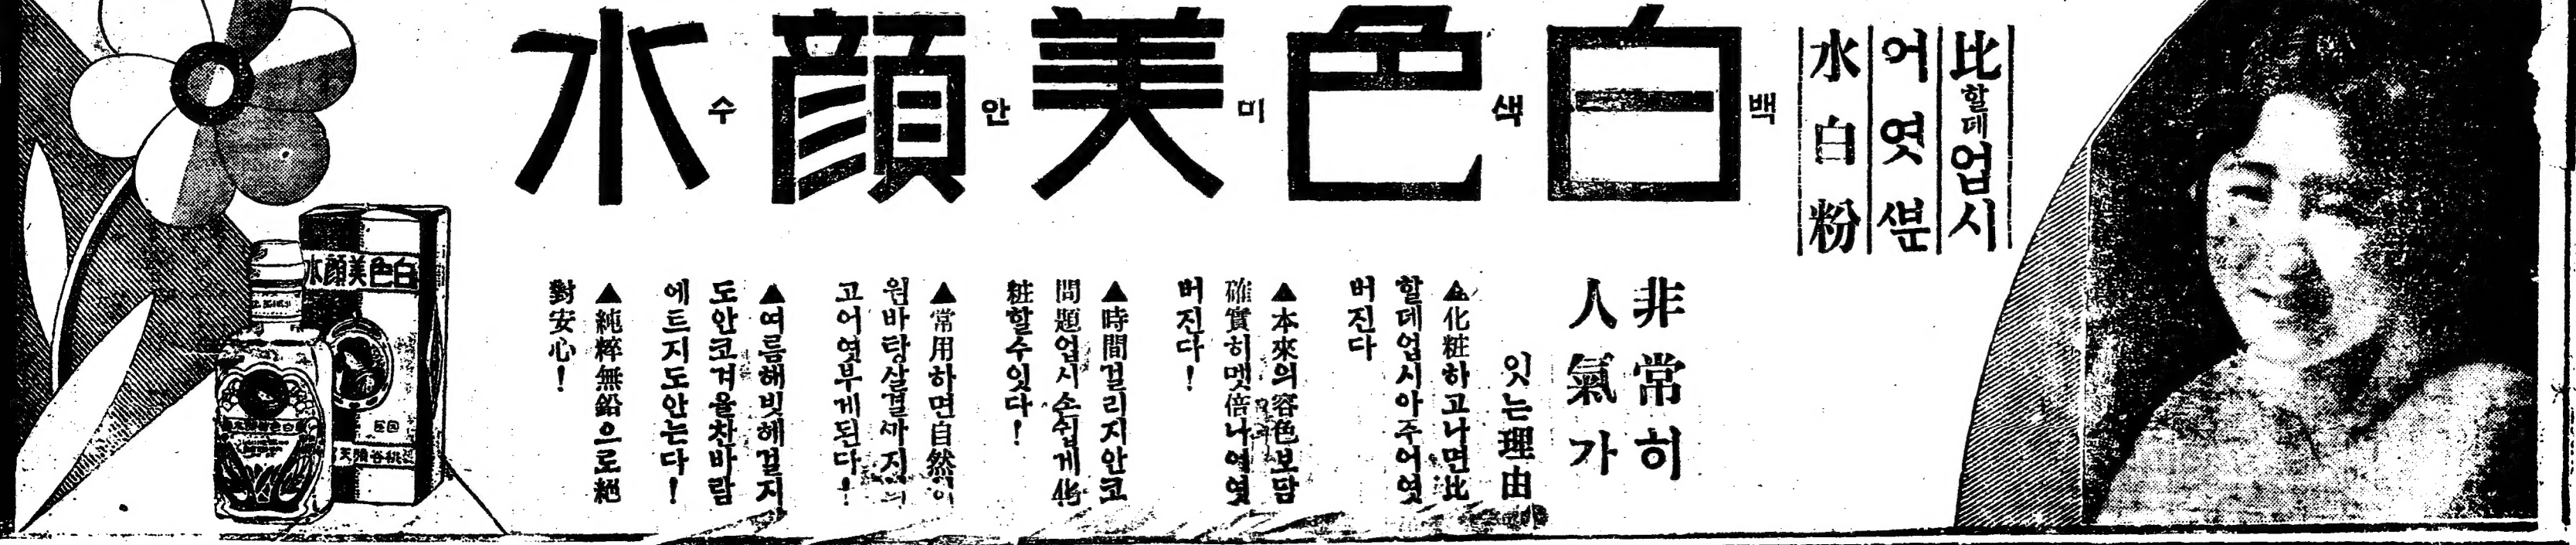 比할데업시
어엿쁜
水白粉
白色美顔水
백색미안수
非常히
人氣가
잇는理由
▲化粧하고나면比
할데업시아주어엿
버진다
▲本來의容色보담
確實히멧倍나어엿
버진다!
▲時間걸리지안코
問題업시손쉽게化
粧할수잇다!
▲常用하면自然히
원바탕살결까지
고어엿부게된다!
▲여름해빗헤걸지
도안코겨울찬바람
에트지도안는다!
▲純粹無鉛으로絶
對安心!
白色美顔水